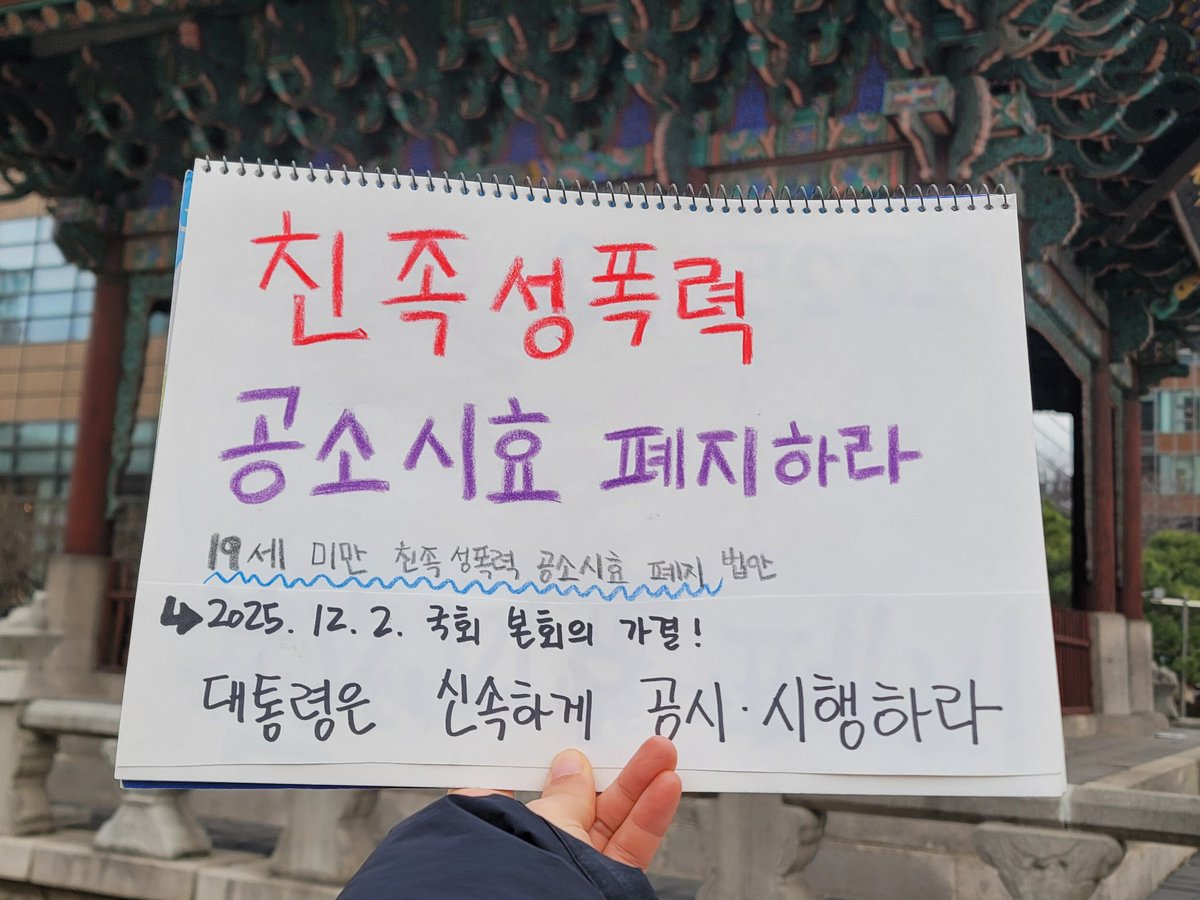 친족성폭력
공소시효 폐지하라
19세 미만 친족성폭력 공소시효 폐지 법안
↳2025. 12. 2. 국회 본회의 가결!
대통령은 신속하게 공시·시행하라